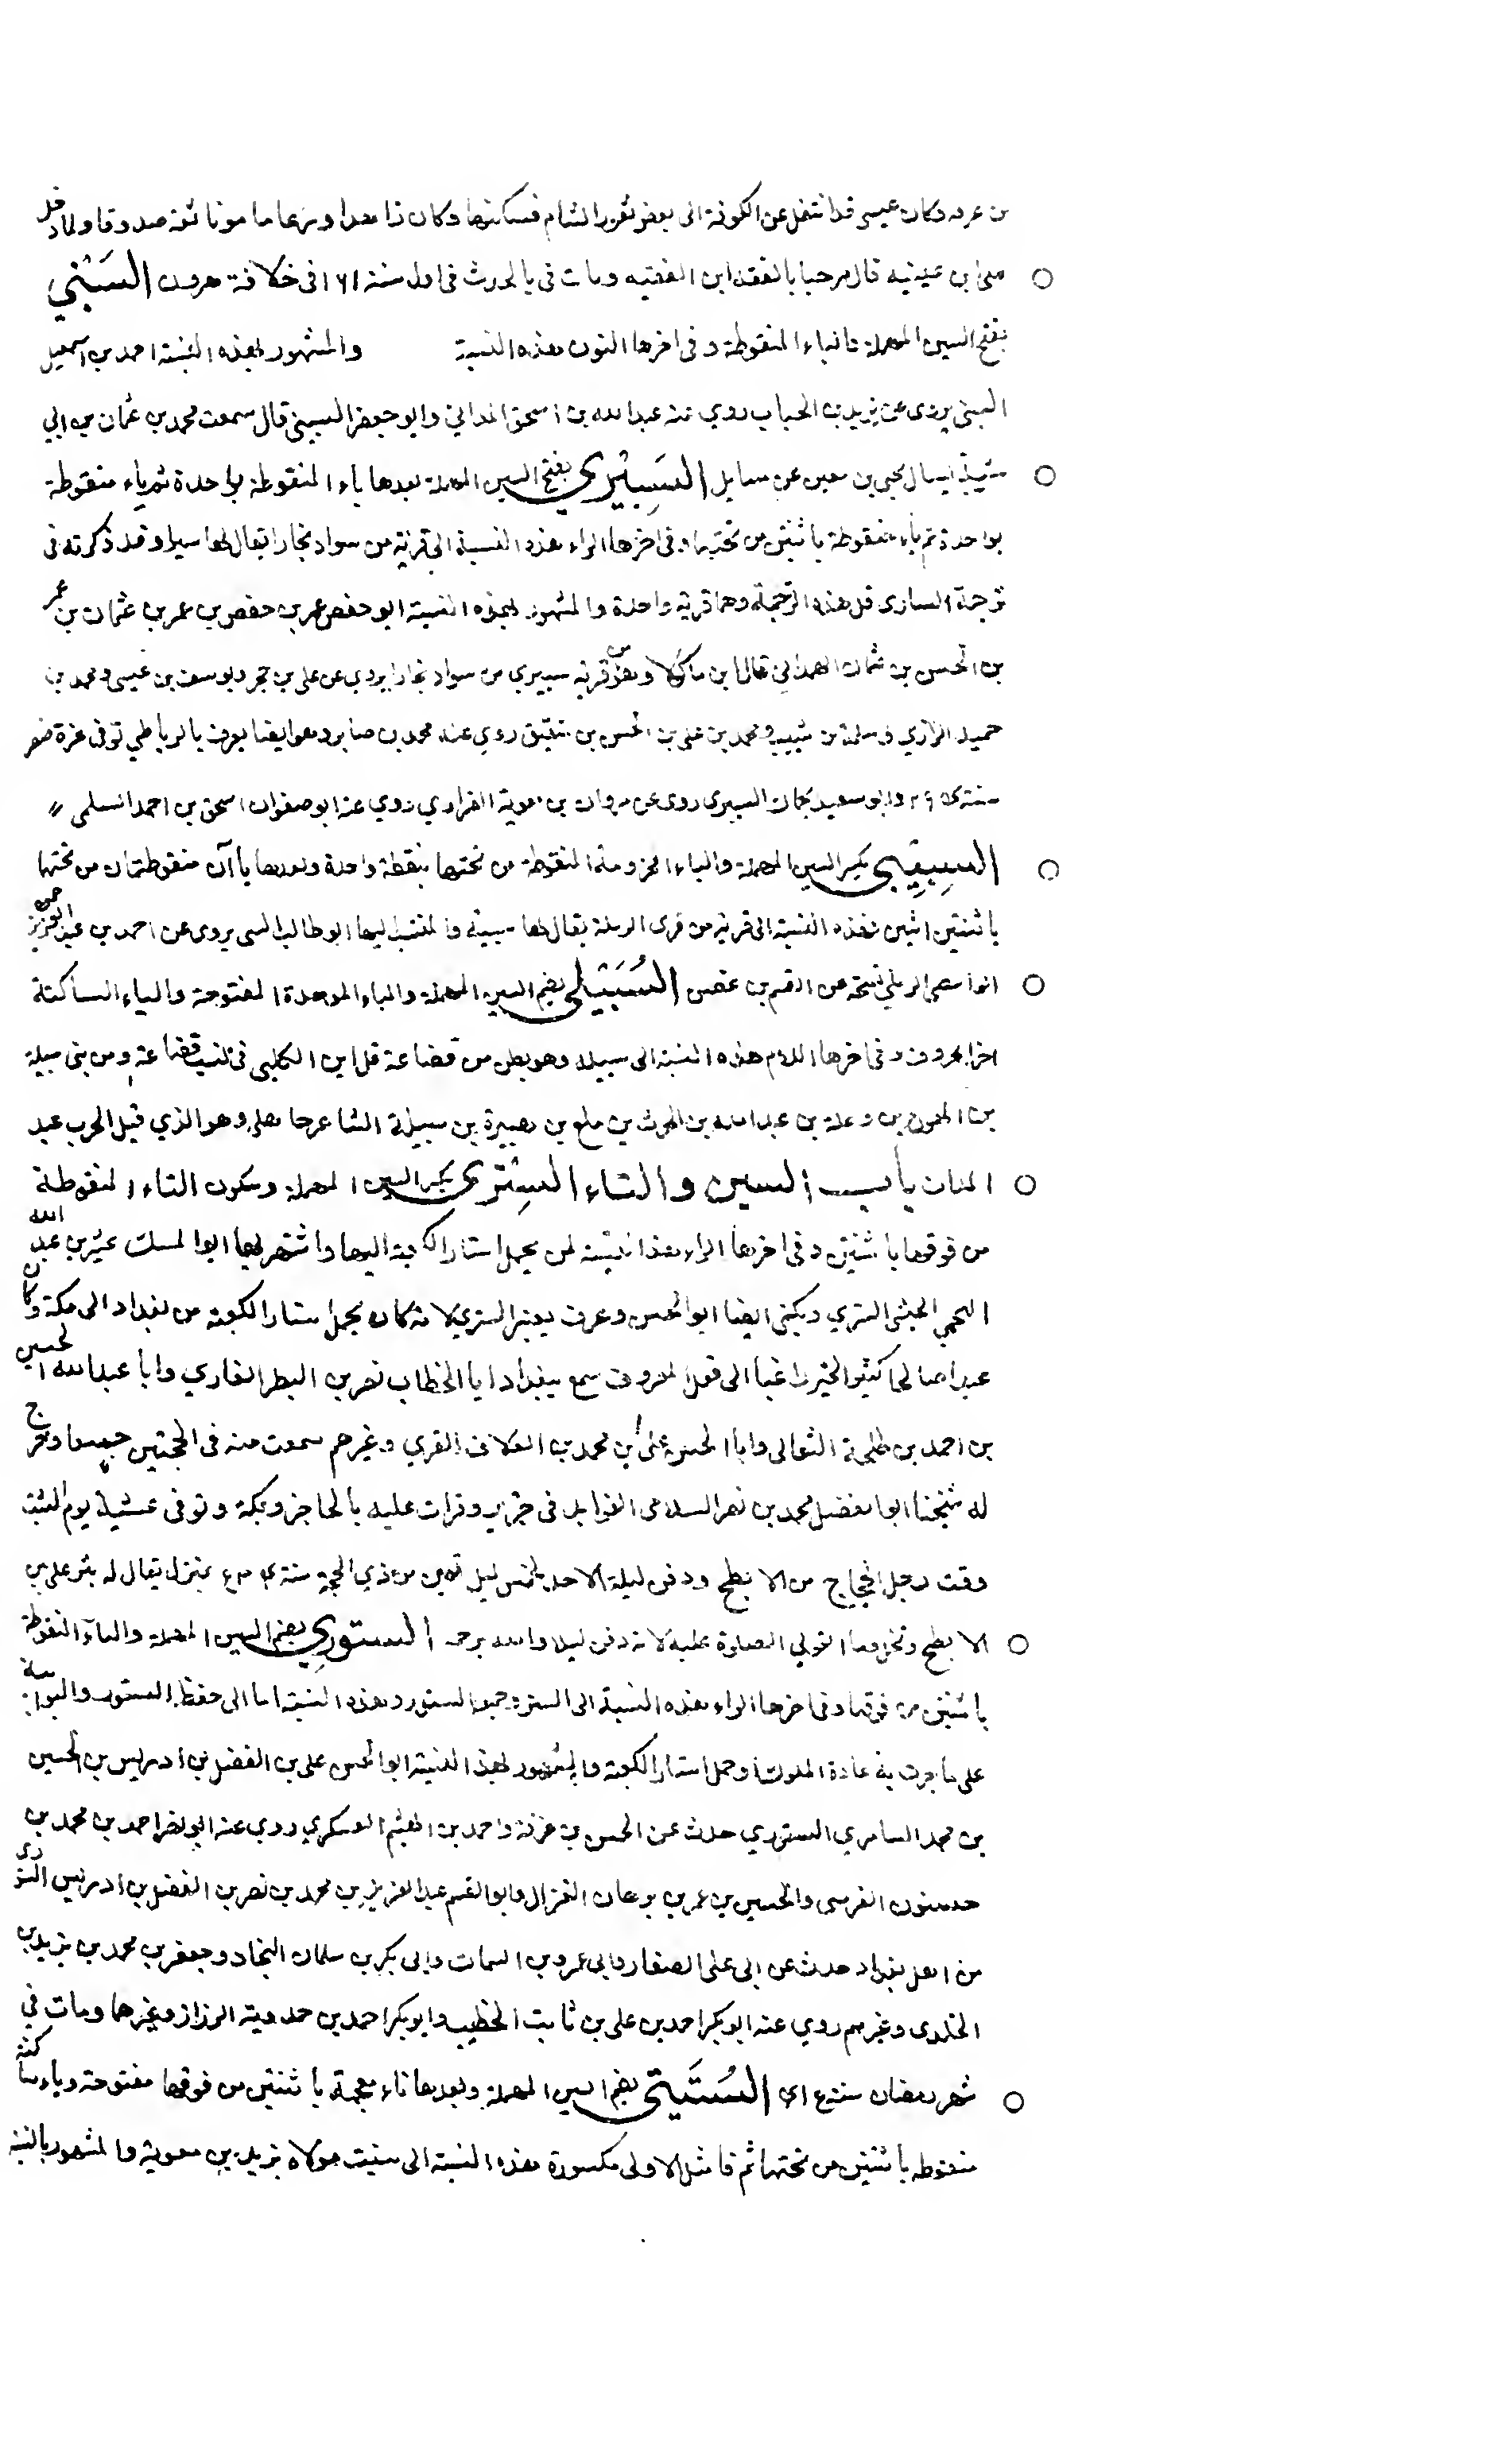 بن عربه وكان عيسى قد انتقل عن الكوفة الى بعض ثغور الشام فسكنها وكان ذا هدا ورعا ما مونا ثقة صدوقا ولما دخل
على ابن عيينة قال مرحبا بالفقه ابن الفقيه ومات في بالحدث في اول سنة ١٩١ في خلافة هرون السَبَنِي
بفتح السين المهملة والباء المنقوطة وفي اخرها النون هذه النسبة والمشهور بهذه النسبة احمد بن اسمعيل
السبني يروى عن زيد بن الحباب روي عنه عبد الله بن اسحق المدائني وابو جعفر السبيني قال سمعت محمد بن عثمان بن ابي
شيبة يسال يحيى بن معين عن مسايل السَبِيْرِي بفتح السين المهملة بعدها باء المنقوطة بواحدة ثم ياء منقوطة
بواحدة ثم ياء منقوطة باثنتين من تحتها وفي اخرها الراء هذه النسبة الى قرية من سواد بخارا يقال لها سبيرا وقد ذكرته في
ترجمة الساري قبل هذه الترجمة وهما قرية واحدة والمشهور بهذه النسبة ابو حفص عمر بن حفص بن عمر بن عثمان بن عمر
بن الحسن بن عثمان الهمداني قال ابن ماكولا وهو من قرية سبيري من سواد بخارا يروي عن علي بن حجر ويوسف بن عيسى ومحمد بن
حميد الرازي وسلمة بن شبيب ومحمد بن علي بن الحسن بن شقيق روي عنه محمد بن صابر وهو ايضا يعرف بالرباطي توفى غرة صفر
سنة ٢٩٤ وابو سعيد السبيري روى عن مروان بن معوية الفزاري روي عنه ابو صفوان اسحق بن احمد السلمى
السِبِيبِي بكسر السين المهملة والباء المجزومة المنقوطة من تحتها بنقطة واحدة وبعدها ياآن منقوطتان من تحتها
باثنتين اثنين هذه النسبة الى قرية من قرى الرملة يقال لها سبية والمنتسب اليها ابو طالب السبيي يروى عن احمد بن عبد العزيز
الواسطى الرملي نسخة عن القسم بن غصن السُبَيْلِي بضم السين المهملة والباء الموحدة المفتوحة والياء الساكنة
اخر الحروف وفي اخرها اللام هذه النسبة الى سبيلة وهو بطن من قضاعة قال ابن الكلبي في نسب قضاعة ومن بني سبيلة
بن الهون بن وعلة بن عبد الله بن الحرث بن بن هبيرة بن سبيلة الشاعر جاهلي وهو الذي قتل الحرب عبد
المدان باب السين والتاء السِتْرِي بكسر السين المهملة وسكون التاء المنقوطة
من فوقها باثنتين وفي اخرها الراء هذا نسبة لمن يحمل استار الكعبة اليها واشتهر بها ابو المسك عنبر بن عبد الله
النجمي الحبشي الستري ويكنى ايضا ابو الحسن وعرف بعنبر الستري لانه كان يحمل استار الكعبة من بغداد الى مكة وكان
عبدا صالحا كثير الخير راغبا الى فعل المعروف سمع ببغداد ابا الخطاب نصر بن البطر القاري وابا عبد الله الحسين
بن احمد بن طلحة النعالى وابا الحسن علي بن محمد بن العلاف المقري وغيرهم سمعت منه في الحجتين جميعا وخرج
له شيخنا ابو الفضل محمد بن نصر السلامى الفوايد في جزين وقرات عليه بالحاجز وبمكة وتوفى عشية يوم السبت
وقت رحيل الحجاج من الابطح ودفن ليلة الاحد لخمس ليل بقين من ذي الحجة سنة ٥٣٤ بمنزل يقال له بئر على بن
الابطح وتقدموا التولي الصلوة عليه لانه دفن ليلا والله يرحمه السُتُورِي بضم السين المهملة والتاء المنقوطة
باثنتين من فوقها وفي اخرها الراء هذه النسبة الى الستر وجمعه الستور وهذه النسبة اما الى حفظ الستور والبوابية
على ما جرت به عادة الملوك او حمل استار الكعبة والمشهور بهذه النسبة ابو الحسن علي بن الفضل بن ادريس بن الحسين
بن محمد السامري الستوري حدث عن الحسن بن عرفة واحمد بن الهيثم العسكري روي عنه ابو نصر احمد بن محمد بن
حسنون النرسى والحسين بن عمر بن برهان الغزال وابو القسم عبد العزيز بن محمد بن نصر بن الفضل بن ادريس الستوري
من اهل بغداد حدث عن ابى على الصفار وابي عمرو بن السماك وابى بكر بن سلمان النجاد وجعفر بن محمد بن نصير بن
الخلدى وغيرهم روي عنه ابو بكر احمد بن علي بن ثابت الخطيب وابو بكر احمد بن حمدوية الرزاز وغيرهما ومات في
شهر رمضان سنة ٤١٥ السُتَيْتِي بضم السين المهملة وبعدها تاء معجمة باثنتين من فوقها مفتوحة وياء ساكنة
منقوطه باثنتين من تحتها ثم تا مثل الاولى مكسورة هذه النسبة الى ستيت مولاة يزيد بن معوية والمشهور بالنسبة